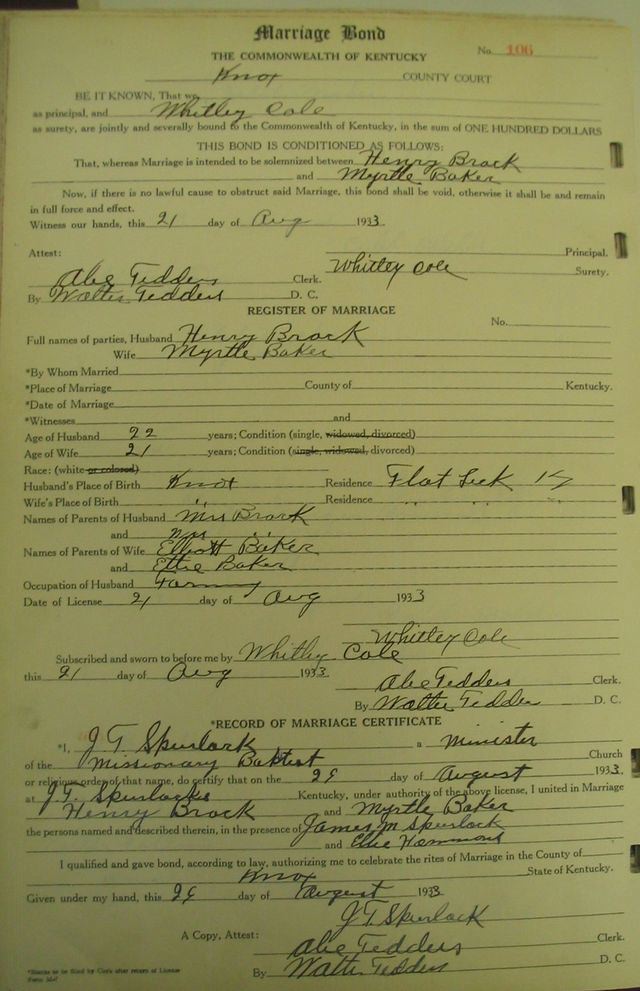 Marriage Bond
THE COMMONWEALTH OF KENTUCKY No. 106
Knox COUNTY COURT
BE IT KNOWN, That we
as principal, and Whitley Cole
as surety, are jointly and severally bound to the Commonwealth of Kentucky, in the sum of ONE HUNDRED DOLLARS
THIS BOND IS CONDITIONED AS FOLLOWS:
That, whereas Marriage is intended to be solemnized between Henry Brock
and Myrtle Baker
Now, if there is no lawful cause to obstruct said Marriage, this bond shall be void, otherwise it shall be and remain
in full force and effect.
Witness our hands, this 21 day of Aug 1933
Attest: Principal.
Abe Tedders Clerk. Whitley Cole Surety.
By Walter Tedders D. C.
REGISTER OF MARRIAGE
No.
Full names of parties, Husband Henry Brock
Wife Myrtle Baker
*By Whom Married
*Place of Marriage County of Kentucky.
*Date of Marriage
*Witnesses and
Age of Husband 22 years; Condition (single, widowed, divorced)
Age of Wife 21 years; Condition (single, widowed, divorced)
Race: (white or colored)
Husband's Place of Birth Knox Residence Flat Lick Ky
Wife's Place of Birth " Residence " " "
Names of Parents of Husband Brock
and " "
Names of Parents of Wife Elliott Baker
and Ettie Baker
Occupation of Husband Farming
Date of License 21 day of Aug 1933
Whitley Cole
Subscribed and sworn to before me by Whitley Cole
this 21 day of Aug 1933
Abe Tedders Clerk.
By Walter Tedders D. C.
*RECORD OF MARRIAGE CERTIFICATE
*I, J.T. Spurlock a minister
of the Missionary Baptist Church
or religious order of that name, do certify that on the day of August 1933.
at J.T. Spurlocks Kentucky, under authority of the above license, I united in Marriage
Henry Brock and Myrtle Baker
the persons named and described therein, in the presence of James M Spurlock
and Hammons
I qualified and gave bond, according to law, authorizing me to celebrate the rites of Marriage in the County of
Knox State of Kentucky.
Given under my hand, this day of August 1933
J.T. Spurlock
A Copy, Attest: Abe Tedders Clerk.
By Walter Tedders D. C.
*Blanks to be filled by Clerk after return of License